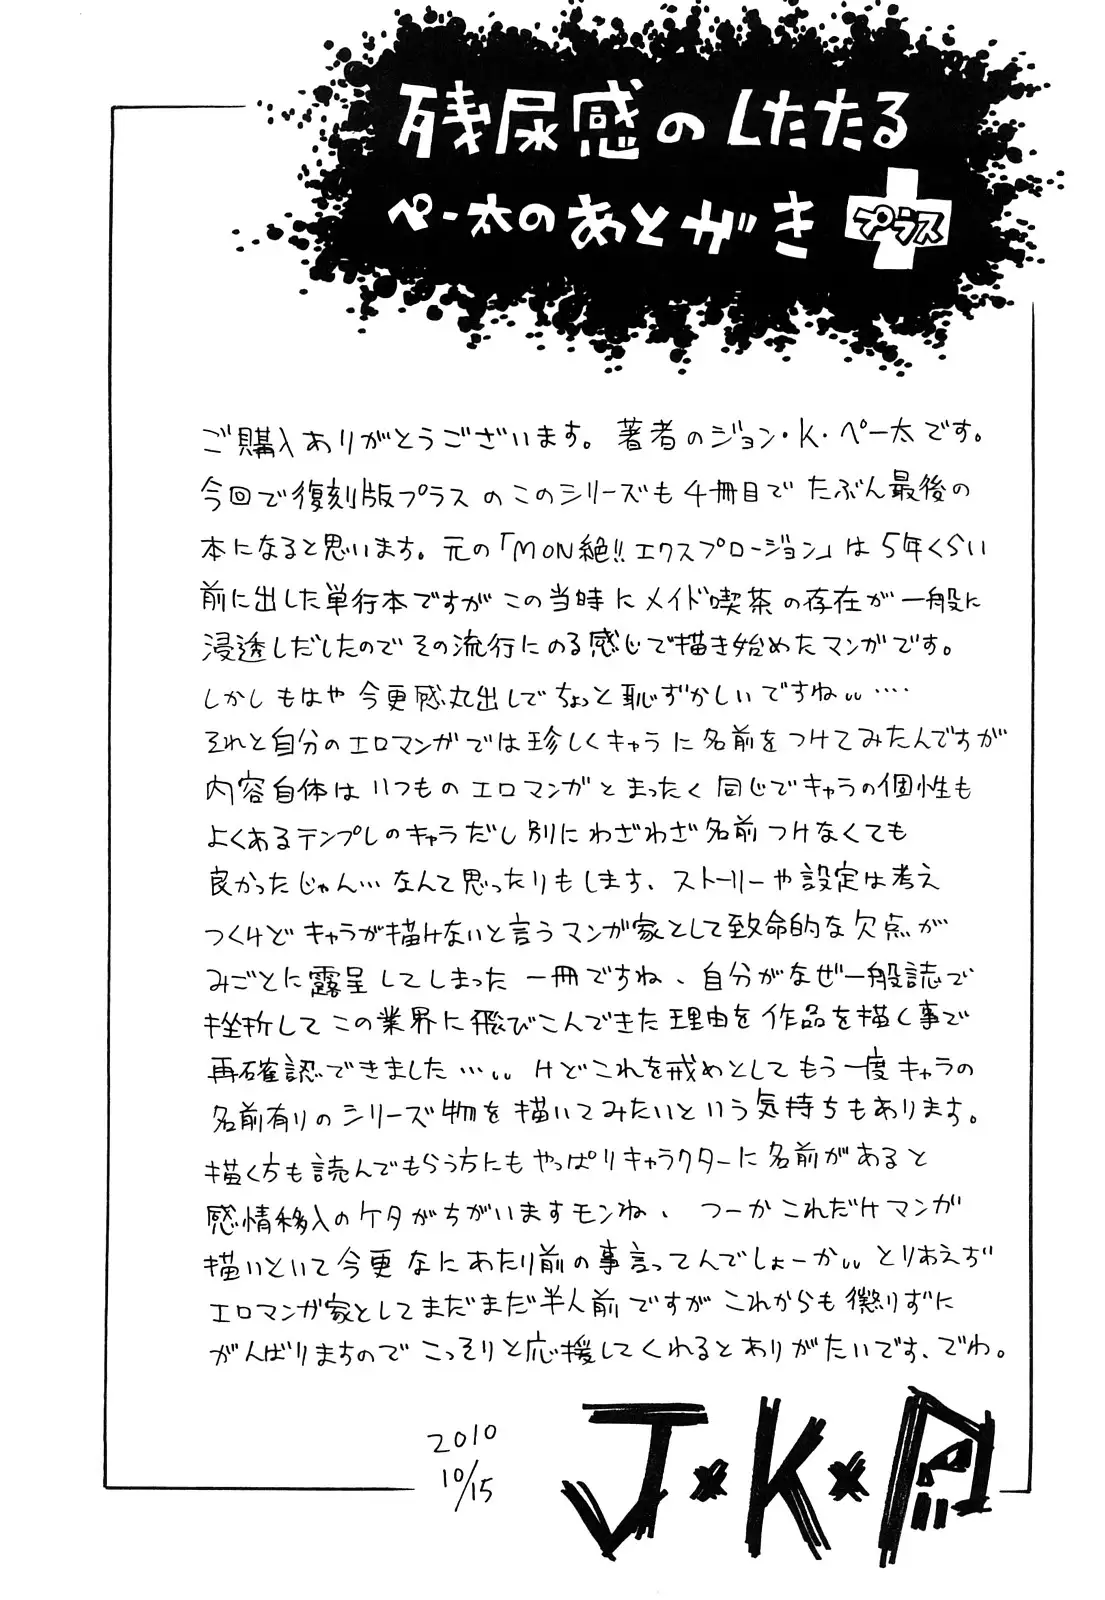 残尿感のしたたる
ペー太のあとがき プラス
ご購入ありがとうございます。著者のジョン・K・ペー太です。
今回で復刻版プラスのこのシリーズも4冊目でたぶん最後の
本になると思います。元の「MON絶!!エクスプロージョン」は5年くらい
前に出した単行本ですがこの当時にメイド喫茶の存在が一般に
浸透しだしたのでその流行にのる感じで描き始めたマンガです。
しかしもはや今更感丸出しでちょっと恥ずかしいですね〟….
それと自分のエロマンガでは珍しくキャラに名前をつけてみたんですが
内容自体はいつものエロマンガとまったく同じでキャラの個性も
よくあるテンプレのキャラだし別にわざわざ名前つけなくても
良かったじゃん…なんて思ったりもします、ストーリーや設定は考え
つくけどキャラが描けないと言うマンガ家として致命的な欠点が
みごとに露呈してしまった一冊ですね、自分がなぜ一般誌で
挫折してこの業界に飛びこんできた理由を作品を描く事で
再確認できました…〟けどこれを戒めとしてもう一度キャラの
名前有りのシリーズ物を描いてみたいという気持ちもあります。
描く方も読んでもらう方にもやっぱりキャラクターに名前があると
感情移入のケタがちがいますモンね、つーかこれだけマンガ
描いといて今更なにあたり前の事言ってんでしょーか〟とりあえず
エロマンガ家としてまだまだ半人前ですがこれからも懲りずに
がんばりますのでこっそりと応援してくれるとありがたいです、でわ。
2010
10/15
J・K・P